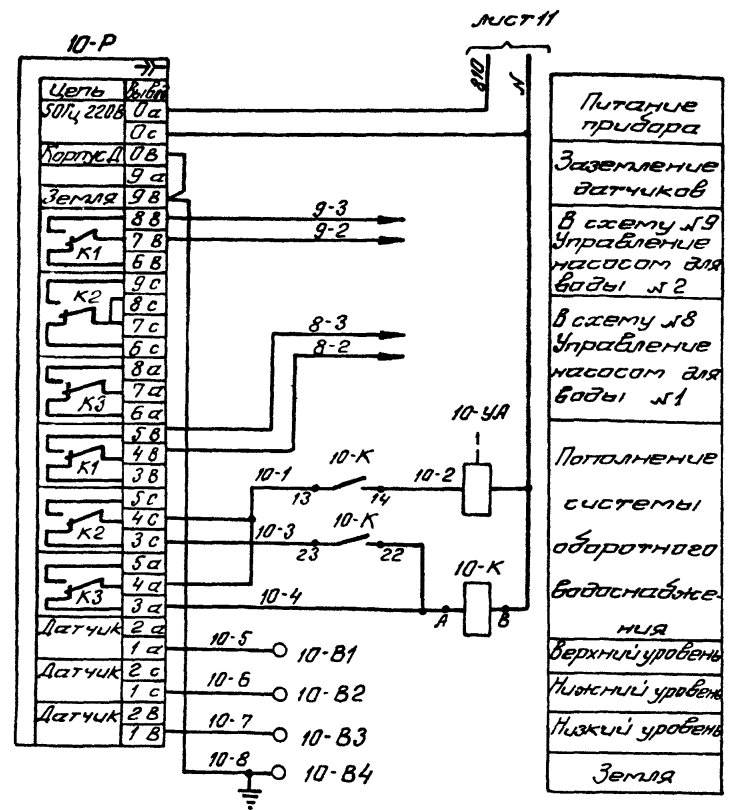 лист 11
10-Р
810
N
Цепь Вывод
50Гц 220В 0а
0с
Корпус Д 0в
9а
Земля 9в
8в
К1 7в
6в
9с
К2 8с
7с
6с
8а
К3 7а
6а
5в
К1 4в
3в
5с
К2 4с
3с
5а
К3 4а
3а
Датчик 2а
1а
Датчик 2с
1с
Датчик 2в
1в
9-3
9-2
8-3
8-2
10-УА
10-1 13 10-К 14 10-2
10-3 23 10-К 22
10-К
10-4 А В
10-5 10-В1
10-6 10-В2
10-7 10-В3
10-8 10-В4
Питание
прибора
Заземление
датчиков
В схему №9
Управление
насосом для
воды №2
В схему №8
Управление
насосом для
воды №1
Пополнение
системы
оборотного
водоснабже-
ния
Верхний уровень
Нижний уровень
Низкий уровень
Земля